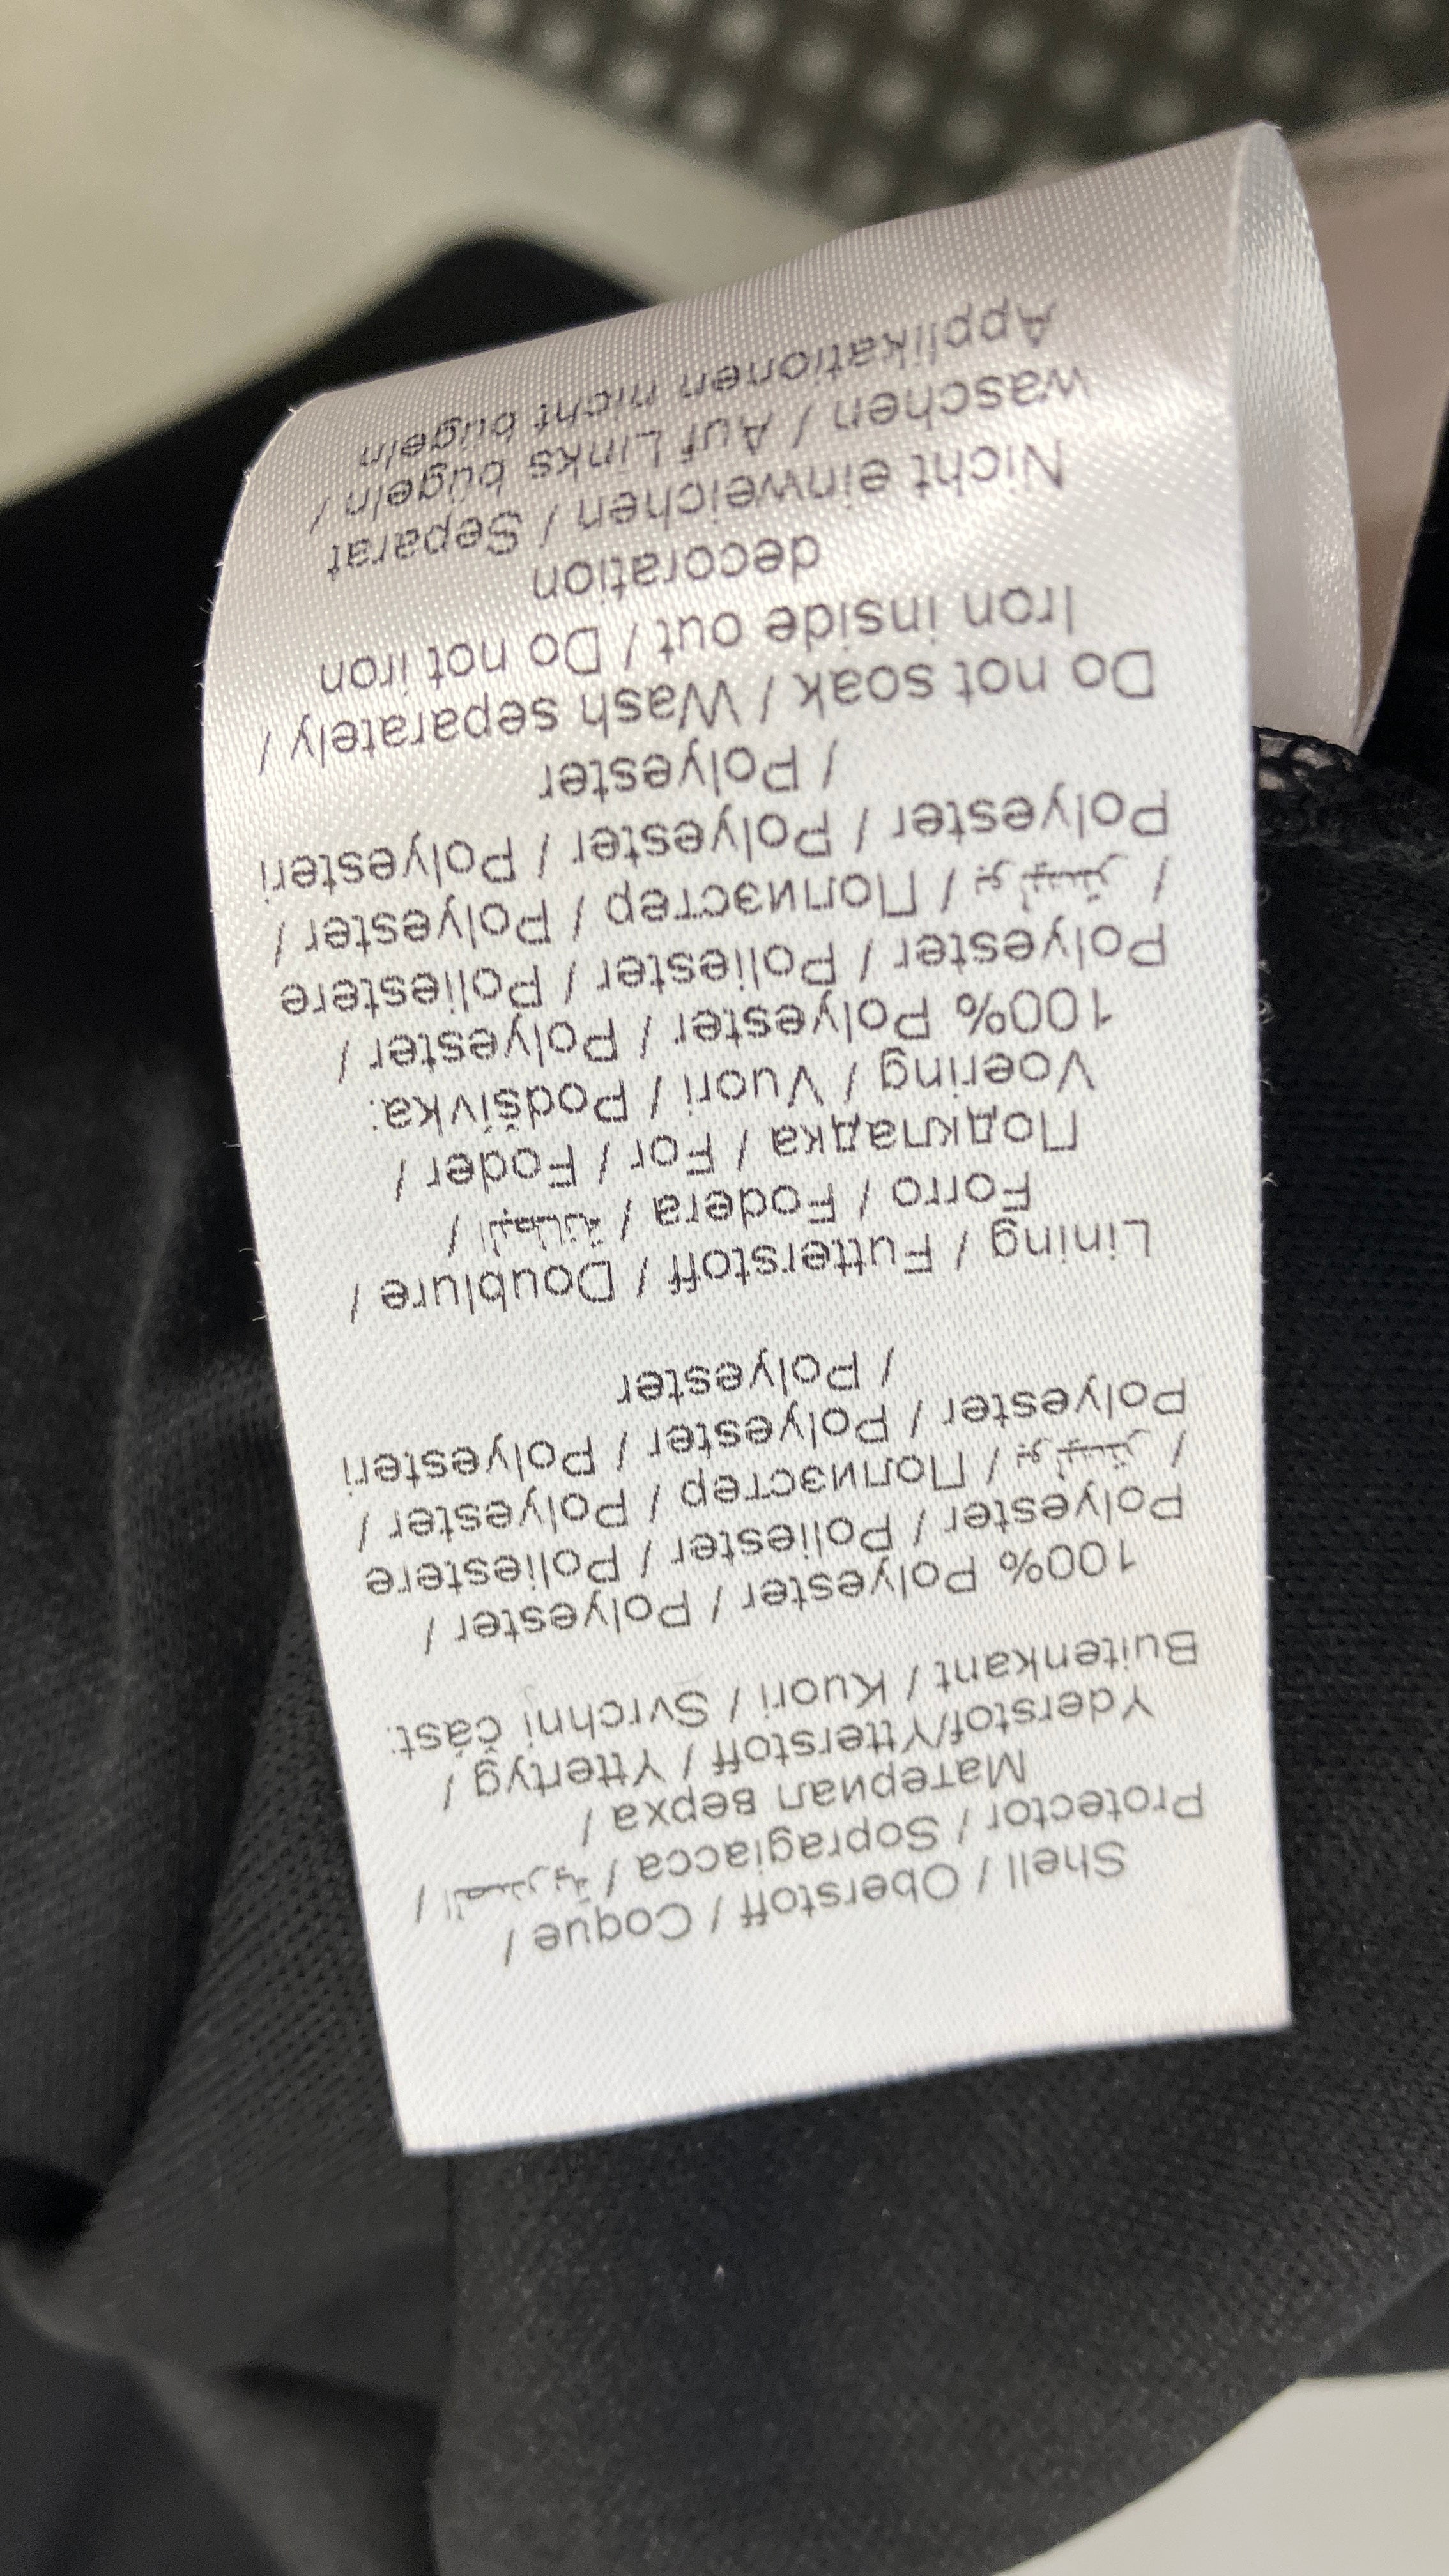 Shell / Oberstoff / Coque /
Protector / Sopragiacca / الصدرية /
Материал верха /
Yderstof/Ytterstoff / Yttertyg /
Buitenkant / Kuori / Svrchní část:
100% Polyester / Polyester /
Polyester / Poliester / Poliestere
/ بوليستر / Полиэстер / Polyester /
Polyester / Polyester / Polyesteri
/ Polyester
Lining / Futterstoff / Doublure /
Forro / Fodera / البطانة /
Подкладка / For / Foder /
Voering / Vuori / Podšívka:
100% Polyester / Polyester /
Polyester / Poliester / Poliestere
/ بوليستر / Полиэстер / Polyester /
Polyester / Polyester / Polyesteri
/ Polyester
Do not soak / Wash separately /
Iron inside out / Do not iron
decoration
Nicht einweichen / Separat
waschen / Auf Links bügeln /
Applikationen nicht bügeln